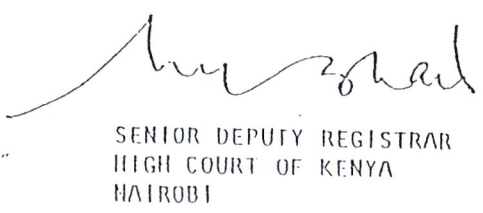 SENIOR DEPUTY REGISTRAR
HIGH COURT OF KENYA
NAIROBI